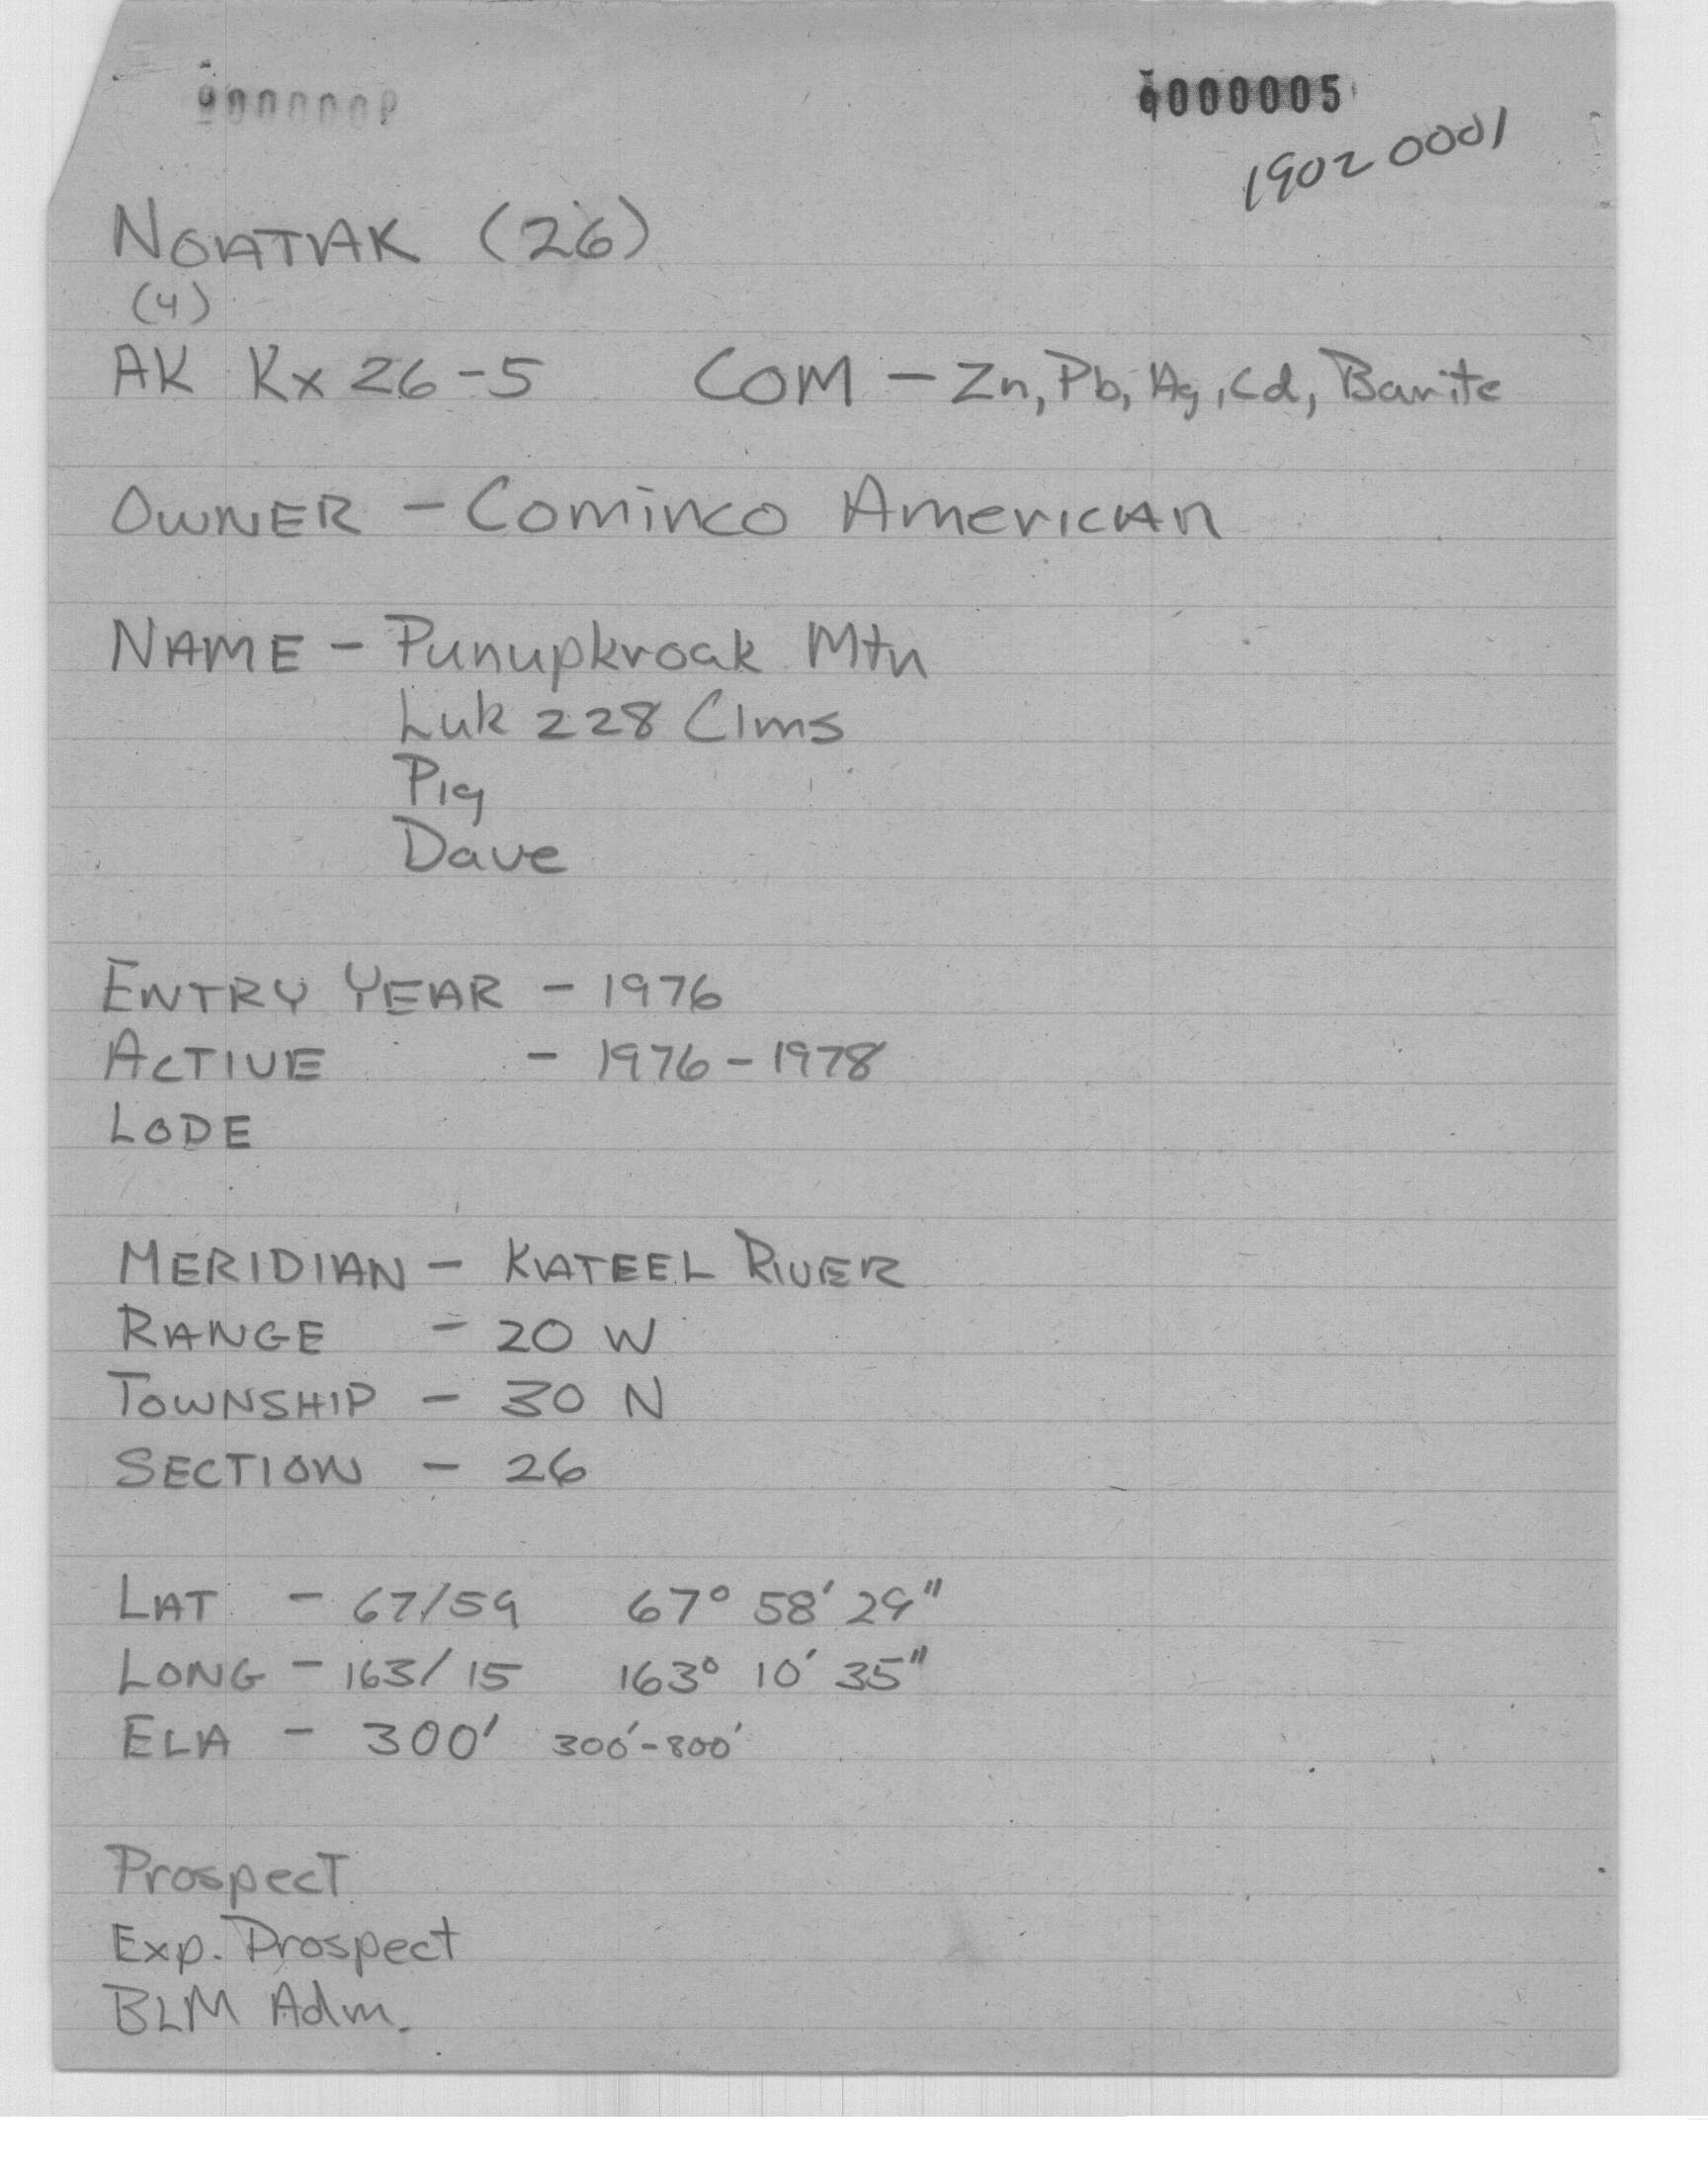 000005
1902 0001
NOATAK (26)
(4)
AK Kx 26-5 COM - Zn, Pb, Ag, Cd, Barite
OWNER - Cominco American
NAME - Punupkroak Mtn
Luk 228 Clms
Pig
Dave
ENTRY YEAR - 1976
ACTIVE - 1976-1978
LODE
MERIDIAN - KATEEL RIVER
RANGE - 20 W
TOWNSHIP - 30 N
SECTION - 26
LAT - 67/59 67° 58' 29"
LONG - 163/15 163° 10' 35"
ELA - 300' 300'-800'
Prospect
Exp. Prospect
BLM Adm.